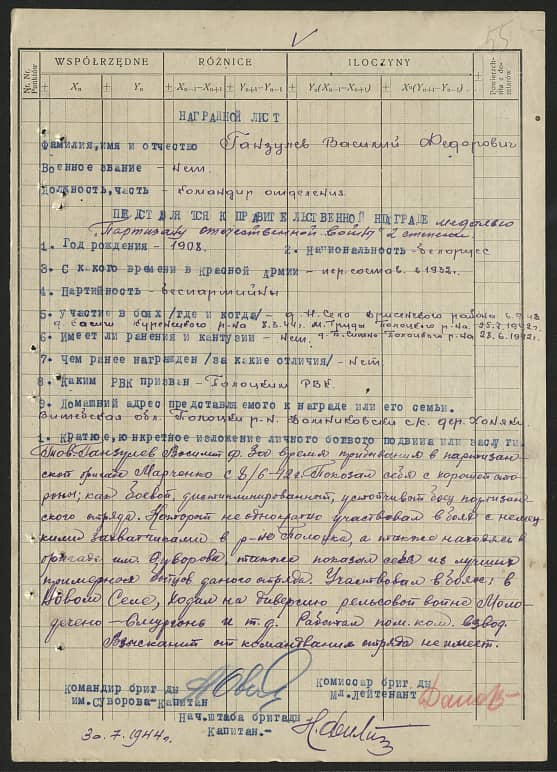 55
WSPÓŁRZĘDNE RÓŻNICE ILOCZYNY
Nr. Nr. Punktów + Xn + Yn + Xn—1—Xn+1 + Yn+1—Yn—1 + Yn(Xn—1—Xn+1) + Xn(Yn+1—Yn—1) +
НАГРАДНОЙ ЛИСТ
Фамилия,имя и отчество Ганзулев Василий Федорович
Военное звание - нет.
Должность,часть - командир отделения
ПЕДСТАВЛЯТСЯ К ПРАВИТЕЛЬСТВЕННОЙ НАГРАДЕ медалью
"Партизану отечественной войны" 2 степени
1. Год рождения - 1908. 2. Национальность - Белорус
3. С какого времени в Красной Армии - пер.состав. в 1932г.
4. Партийность - беспартийны
5. Участие в боях /где и когда/ - д. Н. Село Дрисенского района
Куренецкого р-на 8.3.44г. м. Труды Полоцкого р-на 25.7.1942г.
6. Имеет ли ранения и кантузии - нет. Полоцкого р-на 28.6.1942г.
7. Чем ранее награжден /за какие отличия/ - нет.
8. Каким РВК призван - Полоцким РВК.
9. Домашний адрес представляемого к награде или его семьи.
Витебская обл. Полоцки р-н. с/с. дер. Хотяки
1. Краткое,конкретное изложение личного боевого подвига или заслуги.
Тов. Ганзулев Василит Ф. За время прибывания в партизан-
ской бригаде Марченко с 8/6-42г. Показал себя с хорошей сто-
роны; как боевой, дисциплинированный, устойчивый боец партизан-
ского отряда. Который неоднократно участвовал в боях с немец-
кими захватчисами в р-не Полоцка, а также находясь в
бригаде им. Суворова, также показал себя из лучших
примерных бойцов даного отряда. Участвовал в боях: в
Новом Селе, ходил на диверсию рельсовой война Моло-
дечено-Сморгонь и т.д. Работал пом. ком. взвод.
Взысканий от командвания отряда не имеет.
Командир бриг ды
им.Суворова-капитан
Комиссар бриг ды
Мл.Лейтенант
Нач.штаба бригады
Капитан.-
30.7.1944г.